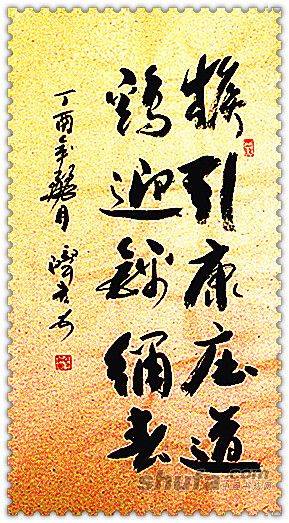 猴引康庄道
鷄迎錦绣春
丁酉年
shufa.com